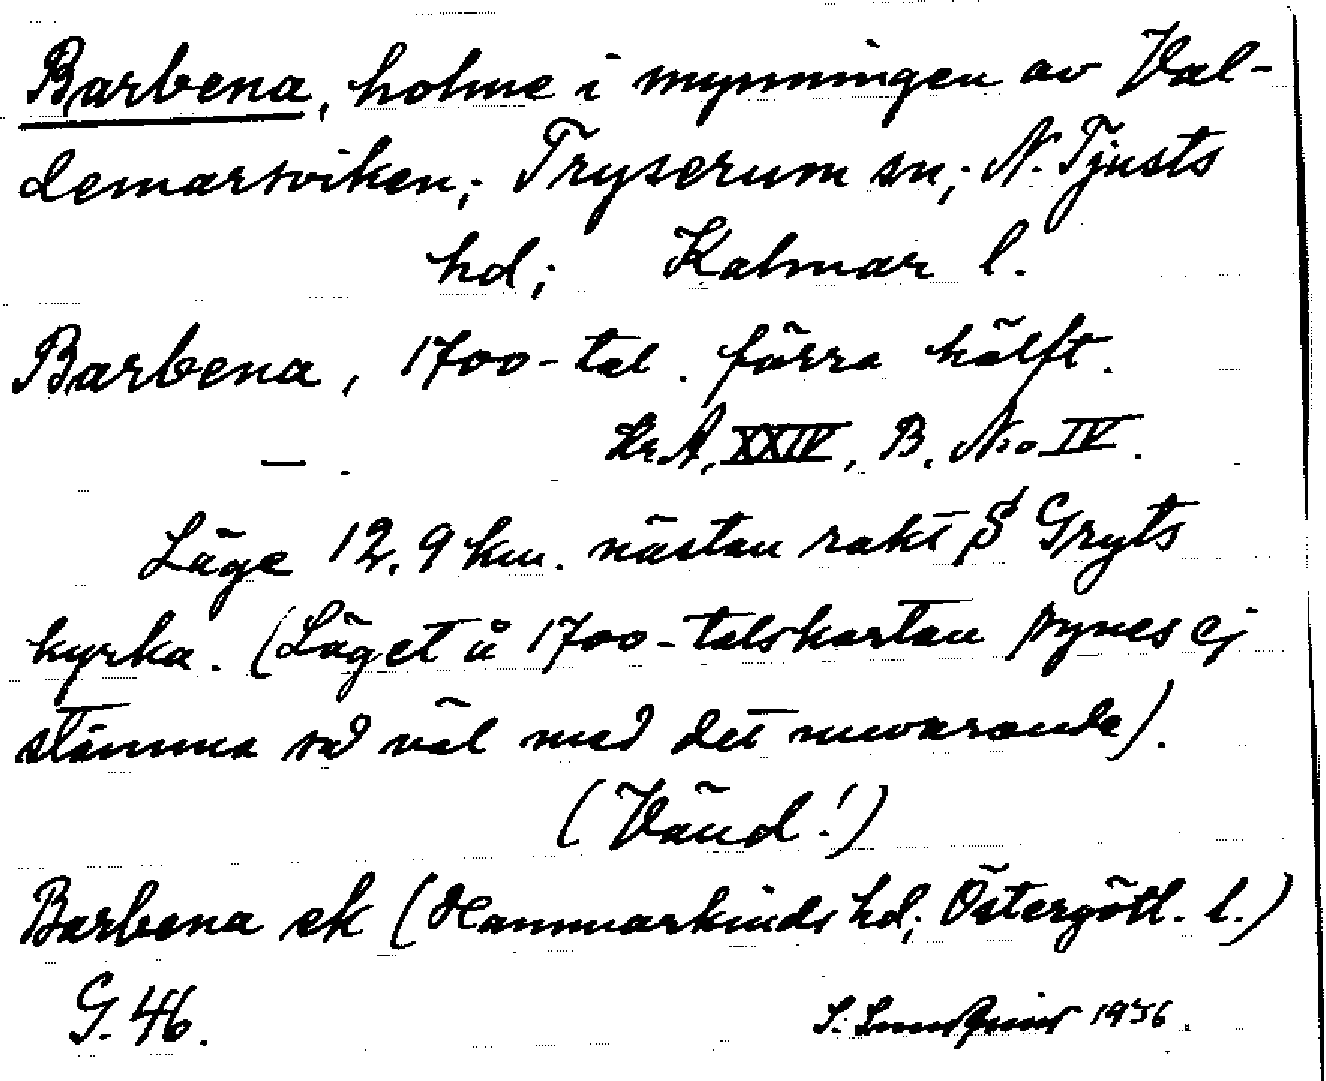 Barbena, holme i mynningen av Val-
demarsviken; Tryserum sn; N. Tjusts
hd; Kalmar l.
Barbena, 1700-tal. förra hälft.
—. Kr A, XXIV, B. No IV.
Läge 12.9 km. nästan rakt S Gryts
kyrka. (Läget å 1700-talskartan synes ej
stämma så väl med det nuvarande).
(Vänd!)
Barbena ek (Hammarkinds hd; Östergötl. l.)
G. 46. 1936.